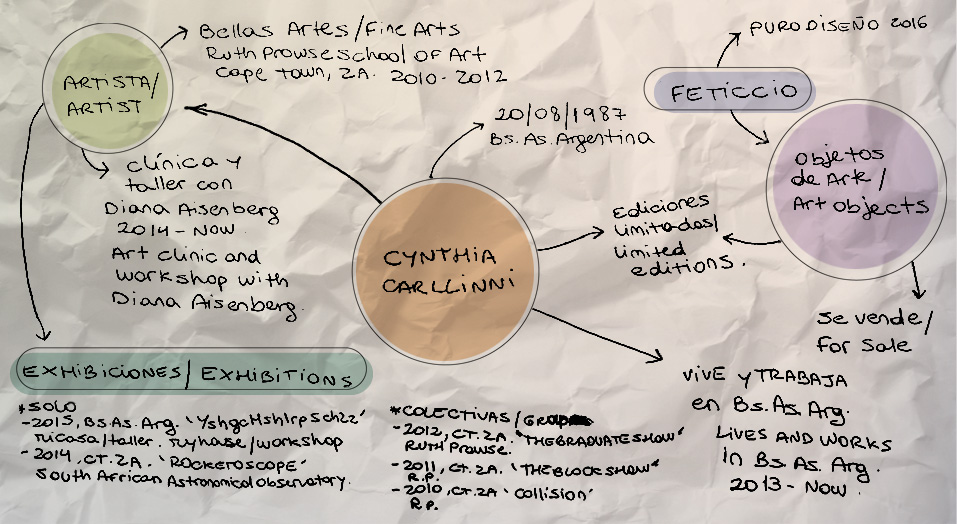 ARTISTA/
ARTIST
Bellas Artes/Fine Arts
Ruth Prowse school of Art
Cape Town, ZA. 2010-2012
clínica y
taller con
Diana Aisenberg
2014-Now.
Art clinic and
workshop with
Diana Aisenberg.
20/08/1987
Bs.As.Argentina
CYNTHIA
CARLLINNI
PURO DISEÑO 2016
FETICCIO
objetos
de Arte/
Art objects
Ediciones
limitadas/
limited
editions.
se vende/
for sale
VIVE y TRABAJA
en Bs.As Arg.
LIVES AND WORKS
In Bs.As Arg.
2013-Now.
EXHIBICIONES/EXHIBITIONS
*SOLO
-2015, Bs.As. Arg.
micasa/taller. myhase/workshop
-2014, CT. ZA. 'ROCKEROSCOPE'
South African Astronomical Observatory.
*COLECTIVAS/GROUP
-2012, CT. ZA. 'THE GRADUATE SHOW'
RUTH Prowse.
-2011, CT. ZA. 'THE BLOCK SHOW'
R.P.
-2010, CT. ZA 'Collision'
R.P.